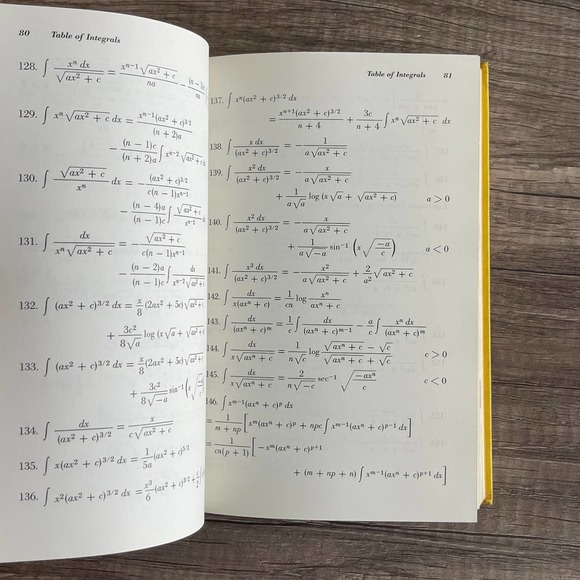 80 Table of Integrals
128. ∫ xⁿ dx / √(ax² + c) = xⁿ⁻¹ √(ax² + c) / na −
129. ∫ xⁿ √(ax² + c) dx = xⁿ⁻¹(ax² + c)^(3/2) / (n + 2)a
− (n − 1)c / (n + 2)a ∫ xⁿ⁻² √(ax² + c)
130. ∫ √(ax² + c) / xⁿ dx = − (ax² + c)^(3/2) / c(n − 1)xⁿ⁻¹
− (n − 4)a / (n − 1)c ∫ √(ax² + c) / xⁿ⁻²
131. ∫ dx / xⁿ √(ax² + c) = − √(ax² + c) / c(n − 1)xⁿ⁻¹
− (n − 2)a / (n − 1)c ∫ dx / xⁿ⁻² √(ax² + c)
132. ∫ (ax² + c)^(3/2) dx = x/8 (2ax² + 5c) √(ax² + c)
+ 3c² / 8√a log (x√a + √(ax² + c)
133. ∫ (ax² + c)^(3/2) dx = x/8 (2ax² + 5c) √(ax² + c)
+ 3c² / 8√−a sin⁻¹ (x √(−a/c)
134. ∫ dx / (ax² + c)^(3/2) = x / c√(ax² + c)
135. ∫ x(ax² + c)^(3/2) dx = 1/5a (ax² + c)^(5/2)
136. ∫ x²(ax² + c)^(3/2) dx = x³/6 (ax² + c)^(3/2) +
Table of Integrals 81
137. ∫ xⁿ(ax² + c)^(3/2) dx
= xⁿ⁺¹(ax² + c)^(3/2) / (n + 4) + 3c / (n + 4) ∫ xⁿ √(ax² + c) dx
138. ∫ x dx / (ax² + c)^(3/2) = − 1 / a√(ax² + c)
139. ∫ x² dx / (ax² + c)^(3/2) = − x / a√(ax² + c)
+ 1 / a√a log (x√a + √(ax² + c)) a > 0
140. ∫ x² dx / (ax² + c)^(3/2) = − x / a√(ax² + c)
+ 1 / a√−a sin⁻¹ (x √(−a/c)) a < 0
141. ∫ x³ dx / (ax² + c)^(3/2) = − x² / a√(ax² + c) + 2/a² √(ax² + c)
142. ∫ dx / x(axⁿ + c) = 1/cn log xⁿ / (axⁿ + c)
143. ∫ dx / (axⁿ + c)ᵐ = 1/c ∫ dx / (axⁿ + c)ᵐ⁻¹ − a/c ∫ xⁿ dx / (axⁿ + c)ᵐ
144. ∫ dx / x√(axⁿ + c) = 1 / n√c log (√(axⁿ + c) − √c) / (√(axⁿ + c) + √c) c > 0
145. ∫ dx / x√(axⁿ + c) = 2 / n√−c sec⁻¹ √(−axⁿ/c) c < 0
146. ∫ xᵐ⁻¹(axⁿ + c)ᵖ dx
= 1 / (m + np) [xᵐ(axⁿ + c)ᵖ + npc ∫ xᵐ⁻¹(axⁿ + c)ᵖ⁻¹ dx]
= 1 / cn(p + 1) [−xᵐ(axⁿ + c)ᵖ⁺¹
+ (m + np + n) ∫ xᵐ⁻¹(axⁿ + c)ᵖ⁺¹ dx]